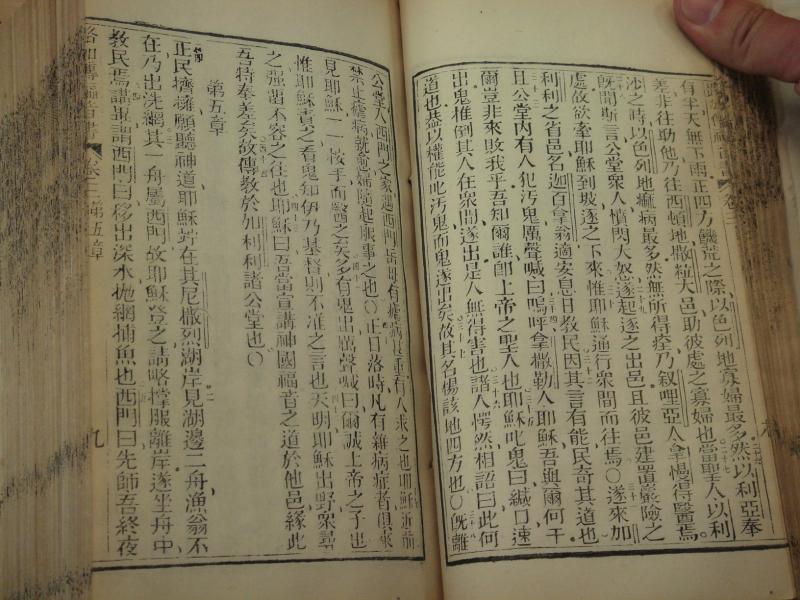 有半天無下雨正四方饑荒之際以色列地寡婦最多然以利亞奉
差非往助他乃往西頓地撒粒大邑助彼處之寡婦也當聖人以利
沙之時以色列地癩病最多然無所得痊乃叙哩亞人拿慢得醫焉
既聞斯言公堂眾人憤悶大怒遂起逐之出邑且彼邑建置巖險之
處故欲牽耶穌到坡逐之下來惟耶穌通行眾間而往焉〇遂來加
利利之省邑名迦百拿翁適安息日教民因其言有能民奇其道也
且公堂內有人犯污鬼厲聲喊曰嗚呼拿撒勒人耶穌吾與爾何干
爾豈非來敗我乎吾知爾誰卽上帝之聖人也耶穌叱鬼曰緘口速
出鬼推倒其人在眾間遂出是人無得害也諸人愕然相語曰此何
道也蓋以權能叱污鬼而鬼遂出矣故其名揚該地四方也〇旣離
公堂入西門之家遇西門岳母有瘧病
禁止瘧病就愈婦隨起服事之也〇正日落時凡有雜病症者俱來
見耶穌一一按手而醫之矣多有鬼出厲聲喊曰爾誠上帝之子也
惟耶穌責之看鬼知伊乃基督則不准之言也天明耶穌出野眾尋
之强留不容之往也耶穌曰吾當宣講神國福音之道於他邑緣此
吾特奉差矣故傳教於加利利諸公堂也〇
第五章
正民擠擁願聽神道耶穌在其尼撒烈湖岸見湖邊二舟漁翁不
在乃出洗網其一舟屬西門故耶穌登之請略撐服離岸遂坐舟中
教民焉講畢謂西門曰移出深水抛網捕魚也西門曰先師吾終夜
卷三第五章
九